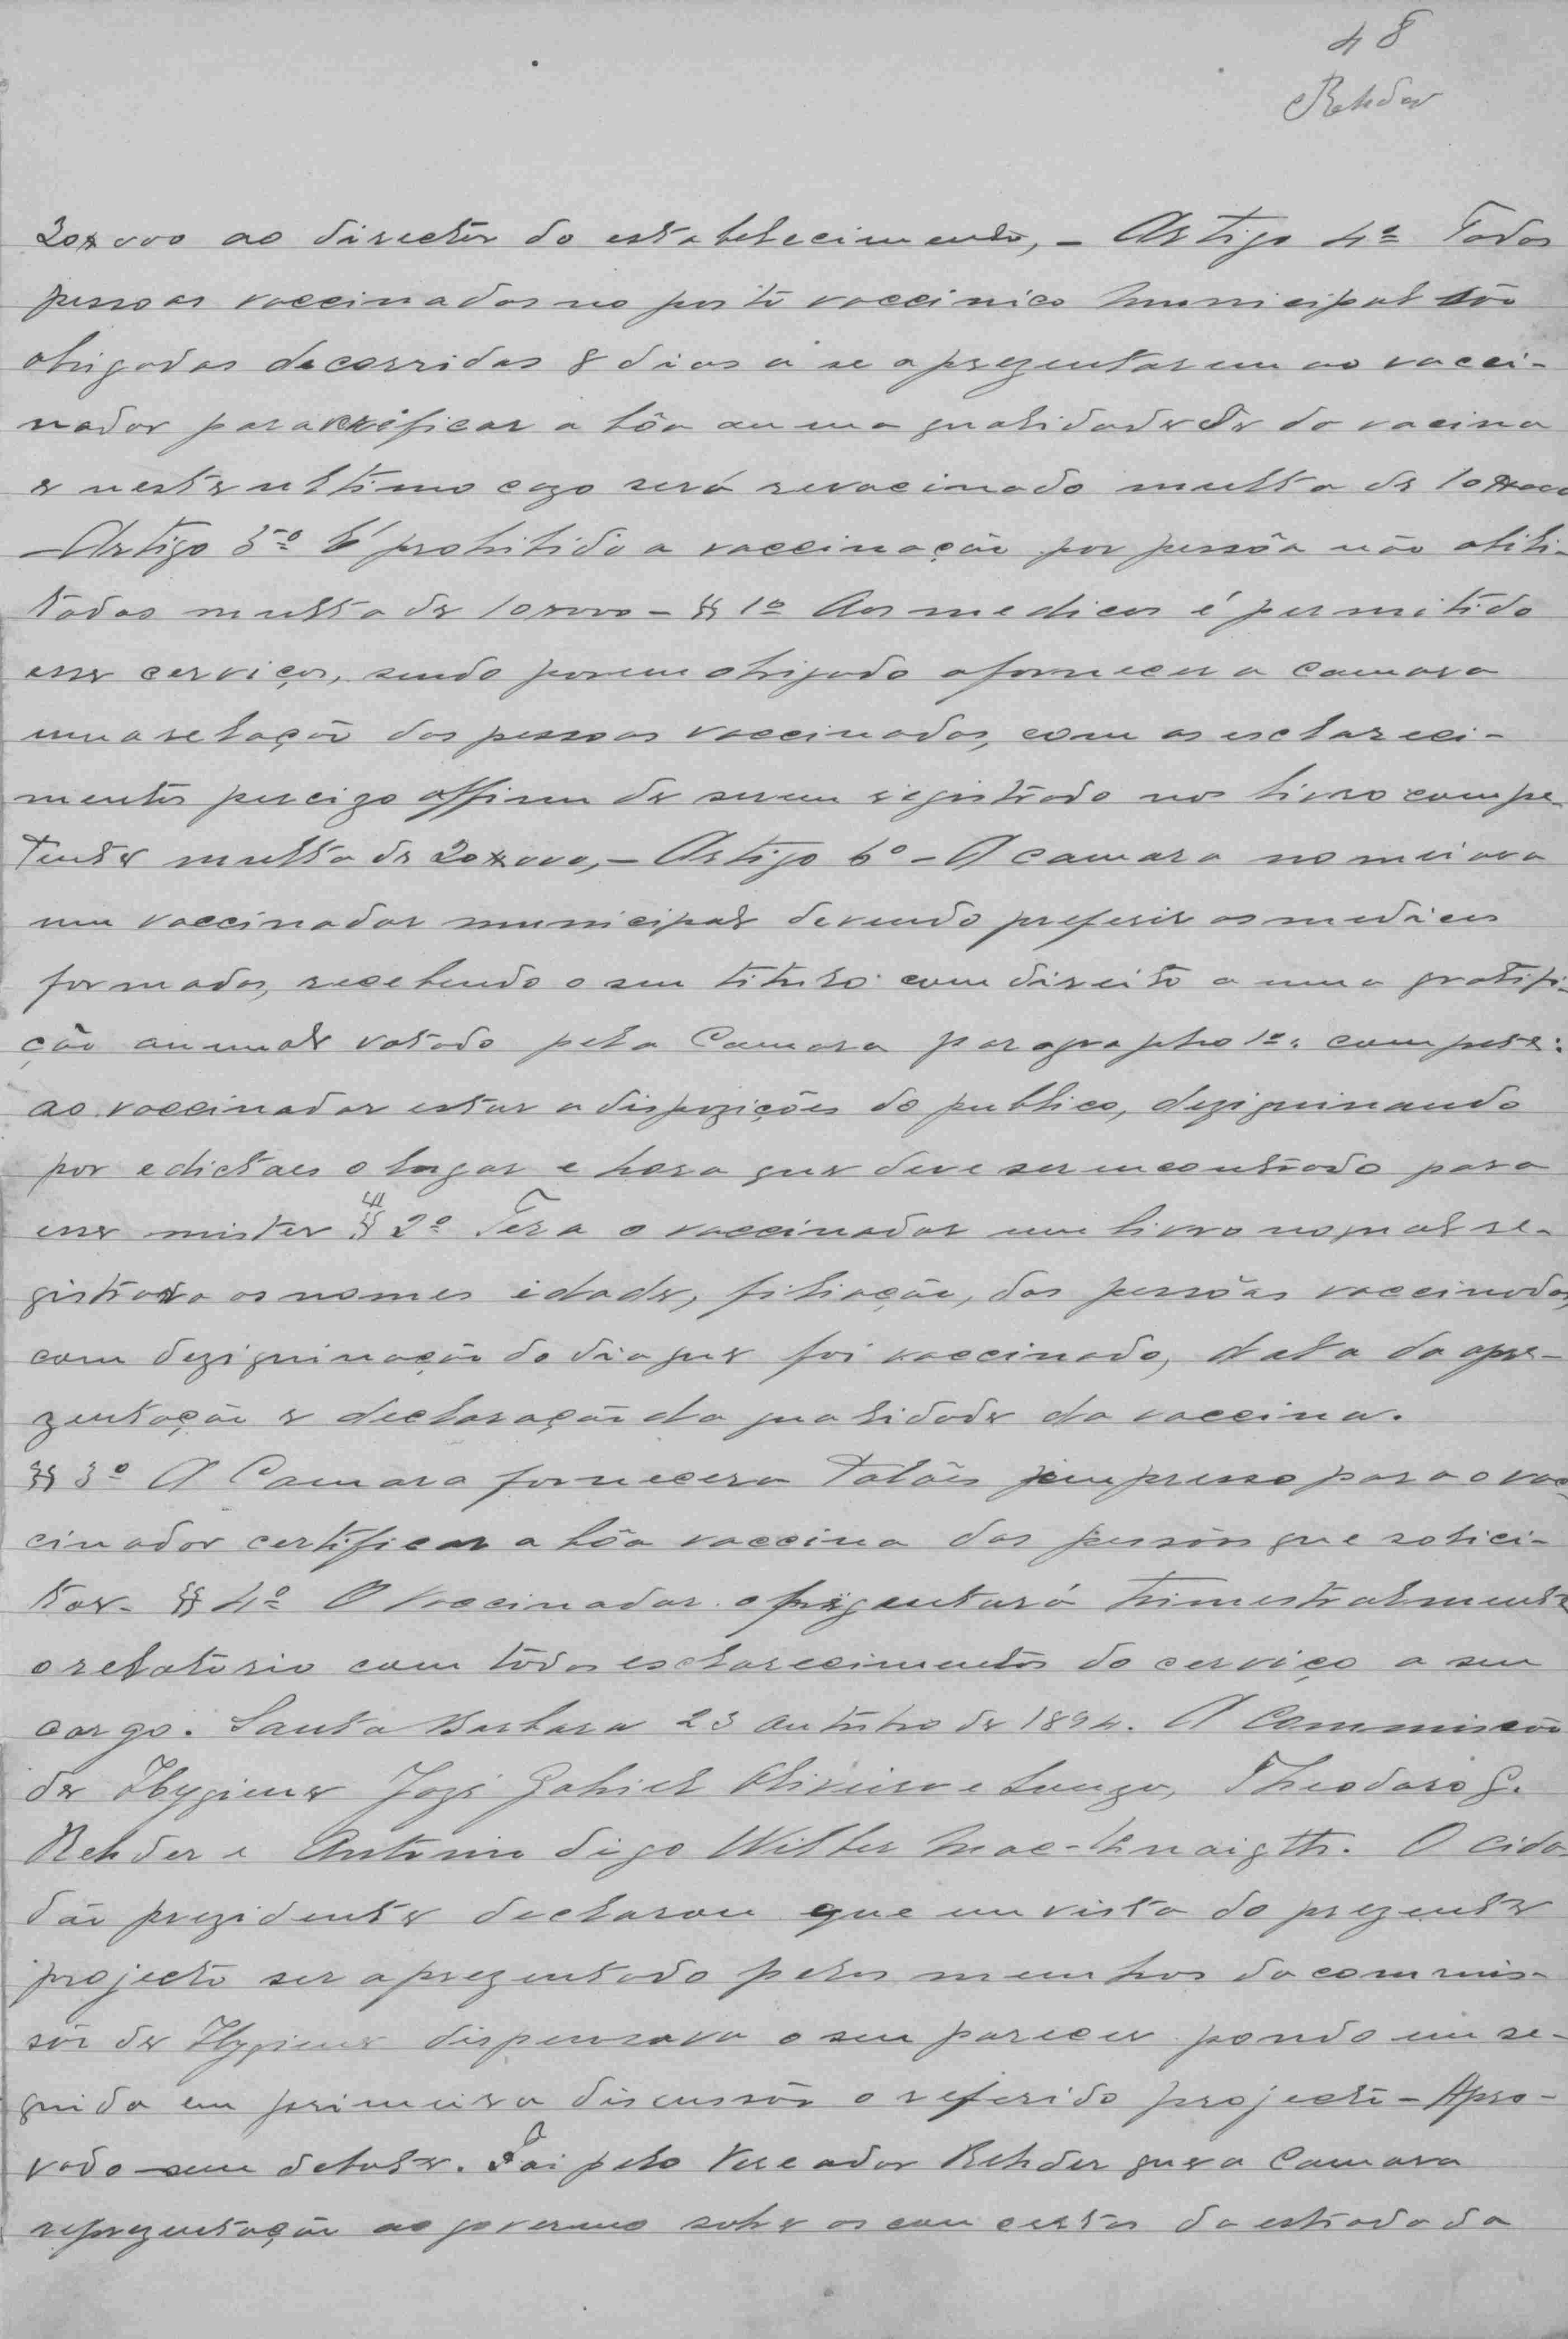 48
Rehder
20$000 ao director do estabelecimento, - Artigo 4º Todas
pessoas vaccinadas no posto vaccinico municipal são
obrigadas decorridas 8 dias a se aprezentarem ao vacci-
nador para verificar a bôa ou ma qualidade de da vacina
e neste ultimo cazo será revacinado multa de 10$000
- Artigo 5º É prohibido a vaccinação por pessôa não abili-
tadas multa de 10$000 - § 1º Aos medicos é permitido
esse cerviços, sendo porem obrigado a fornecer a camara
uma relação das pessoas vaccinados, com as esclareci-
mentos percizo affim de serem registrado nos livro compe-
tente multa de 20$000, - Artigo 6º - A camara nomeiara
um vaccinador municipal devendo preferir os medicos
formados, recebendo o seu titulo com direito a uma gratifi-
ção annual votado pela Camara paragrapho 1º: compete:
ao vaccinador estar a dispozições do publico, deziguinando
por edictaes o lugar e hora que deve ser incontrado para
esse mister § 2º Tera o vaccinador um livro no qual re-
gistrara os nomes idade, filiação, das pessôas vaccinados
com deziguinação do dia que foi vaccinado, data da apre-
zentação e declaração da qualidade da vaccina.
§ 3º A Camara fornecera talões impresso para o vac-
cinador certificar a bôa vaccina das pessôas que solici-
tar. § 4º O vaccinador aprezentará trimestralmente
o relatorio com todos esclarecimentos do cerviço a seu
cargo. Santa Barbara 23 outubro de 1894. A Commisão
de Hygiene Jozé Gabriel Oliveira e Souza, Theodoro G.
Rehder e Antonio digo Wilber Mac-Knaigth. O cida-
dão prezidente declarou que em vista do prezente
projecto ser aprezentado pelos membros da commis-
são de Hygiene dispensava o seu parecer pondo em se-
guida em primeira discussão o referido projecto - Apro-
vado sem debate. Foi pelo Vereador Rehder que a Camara
reprezentação ao governo sobre os concertos da estrada da